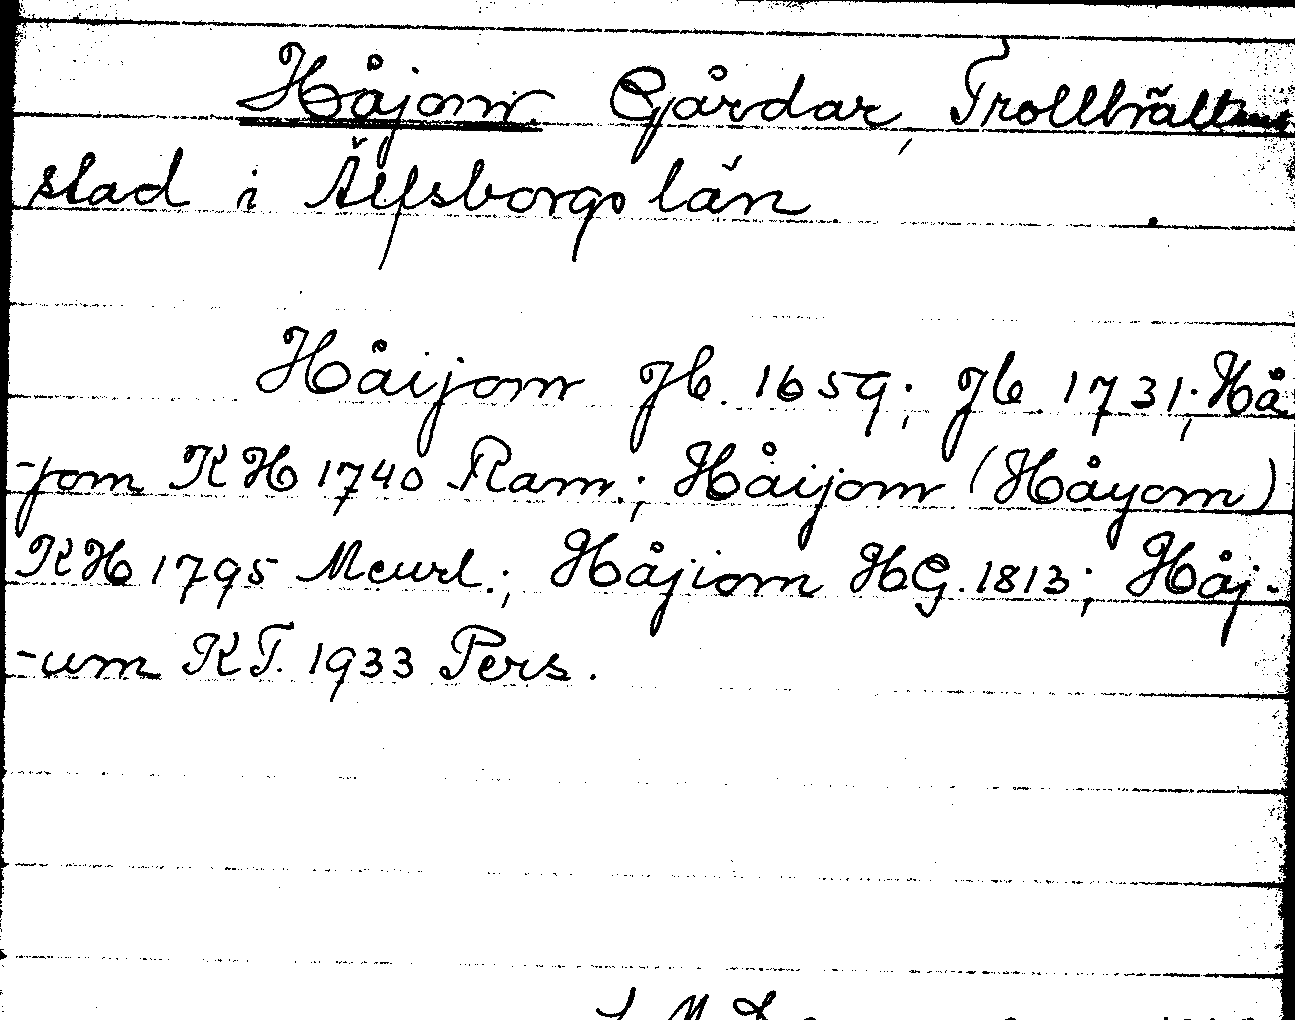 Håjom. Gårdar, Trollhättans
stad i Älfsborgs län
Håijom Jb. 1659; Jb. 1731; Hå
-jom KH 1740 Ram.; Håijom (Håyom)
KH 1795 Meurl.; Håjiom HG. 1813; Håj-
-um KT. 1933 Pers.